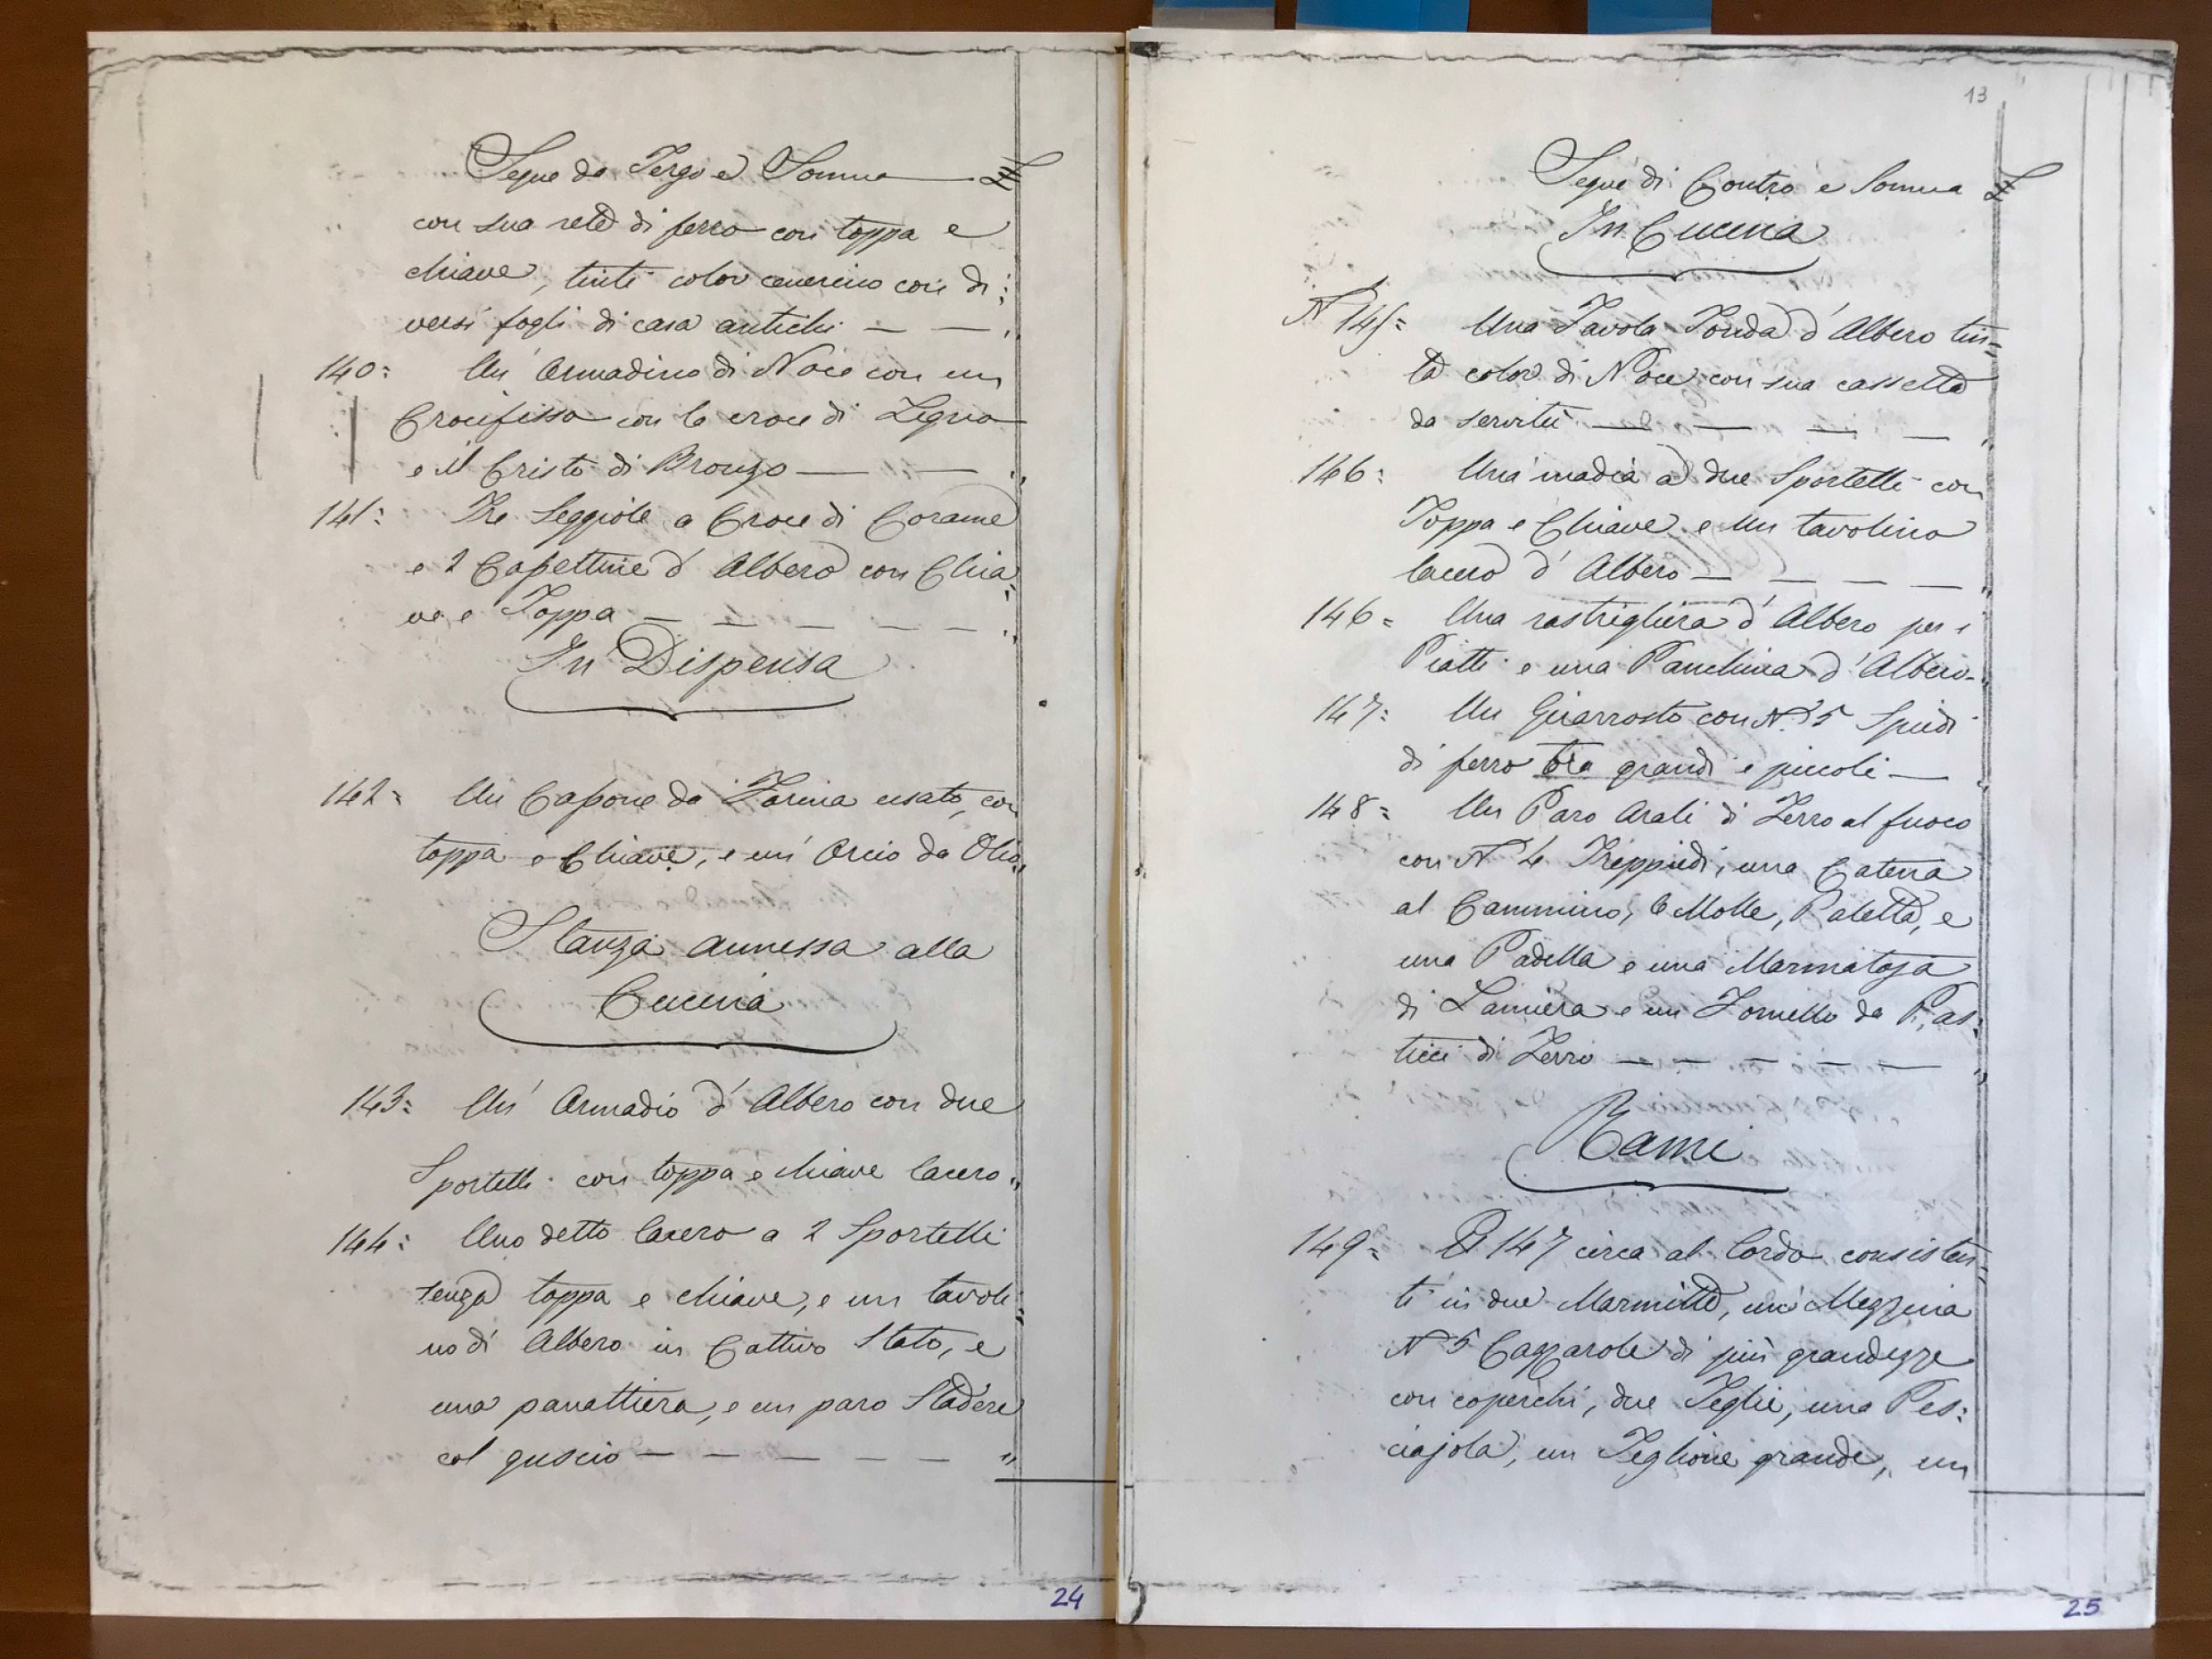 Segue da Tergo e Somma £
con sua rete di ferro con toppa e
chiave, tinti color cenerino con di:
versi fogli di casa antichi — — "
140: Un' Armadino di Noce con un
Crocifisso con la croce di Legno
e il Cristo di Bronzo — — "
141: Tre Seggiole a Croce di Corame
e 2 Cassettine d' Albero con Chia:
ve e Toppa — — — — — "
In Dispensa
142= Un Cassone da Farina usato, con
toppa e Chiave, e un' Orcio da Olio "
Stanza annessa alla
Cucina
143= Un' Armadio d' Albero con due
Sportelli con toppa e chiave lacero "
144: Uno detto lacero a 2 Sportelli
senza toppa e chiave, e un tavoli:
no di Albero in Cattivo Stato, e
una panattiera, e un paro Stadere
col guscio — — — — — "
24
13
Segue di Contro e Somma £
In Cucina
N 145= Una Tavola Tonda d' Albero tin=
ta color di Noce con sua cassetta
da servitù — — — — "
146: Una madia a due Sportelli con
Toppa e Chiave e un tavolino
lacero d' Albero — — — — "
146= Una rastrigliera d' Albero per i
Piatti e una Panchina d' Albero - "
147: Un Girarrosto con N. 5 Spiedi
di ferro tra grandi e piccoli — "
148= Un Paro Arali di Ferro al fuoco
con N 4 Treppiedi, una Catena
al Cammino, le Molle, Paletta, e
una Padella e una Marmatoja
di Lamiera e un Fornello da Pas:
ticci di Ferro — — — — — "
Rami
149= 147 circa al lordo consisten:
ti in due Marmitte, una Mezzina
N 5 Cazzarole di più grandezze
con coperchi, due Teglie, una Pes:
ciajola, un Teglione grande, un
25